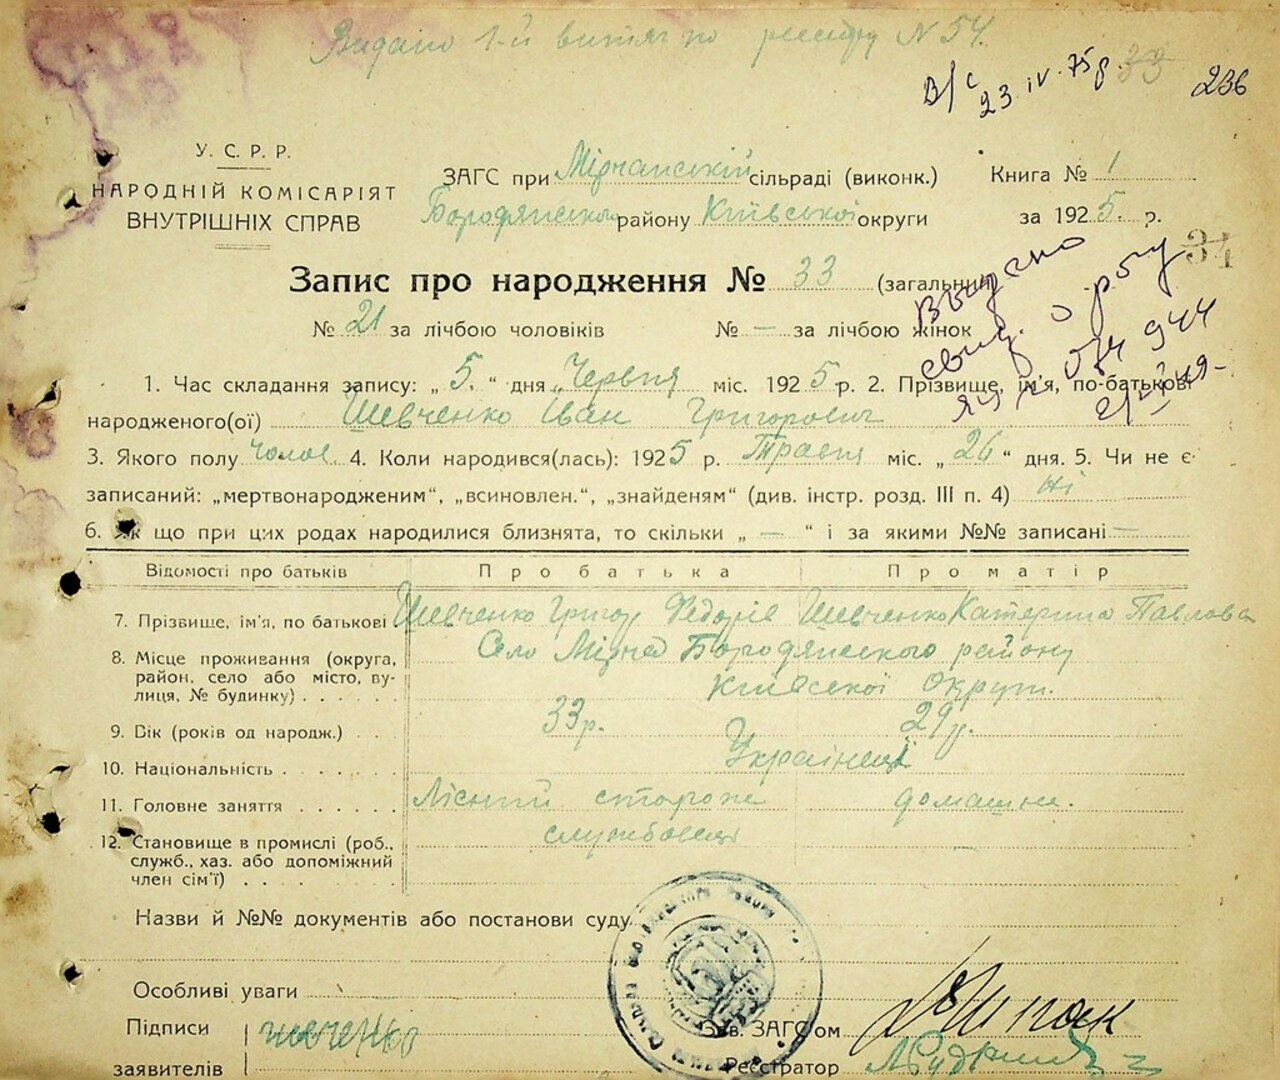 Видано 1-й витяг по реєстру N 54.
В/с 23 IV. 75 р. 33 236
У. С. Р. Р.
НАРОДНІЙ КОМІСАРІЯТ
ВНУТРІШНІХ СПРАВ
ЗАГС при Мірчанській сільраді (виконк.) Книга № 1
Бородянського району Київської округи за 1925. р.
34
Запис про народження № 33 (загальний)
№ 21 за лічбою чоловіків № — за лічбою жінок
Выдано
свид. о
944
1. Час складання запису: „ 5. “ дня Червня міс. 1925 р. 2. Прізвище, ім'я, по-батькові
народженого(ої) Шевченко Іван Григорович
3. Якого полу чолов. 4. Коли народився(лась): 1925 р. Травня міс. „ 26 “ дня. 5. Чи не є
записаний: „мертвонародженим“, „всиновлен.“, „знайденям“ (див. інстр. розд. III п. 4) ні
6. Як що при цих родах народилися близнята, то скільки „ — “ і за якими №№ записані —
Відомості про батьків Про батька Про матір
7. Прізвище, ім'я, по батькові Шевченко Григор Федорів Шевченко Катерина Павлова
8. Місце проживання (округа, район, село або місто, вулиця, № будинку) Село Мірча Бородянського району
Київської округи.
9. Вік (років од народж.) 33р. 29р.
10. Національність Українці
11. Головне заняття Лісний сторож домашн.
12. Становище в промислі (роб., служб., хаз. або допоміжний член сім'ї) службовець
Назви й №№ документів або постанови суду
Особливі уваги
Підписи
заявителів
Зав. ЗАГС'ом
Реєстратор